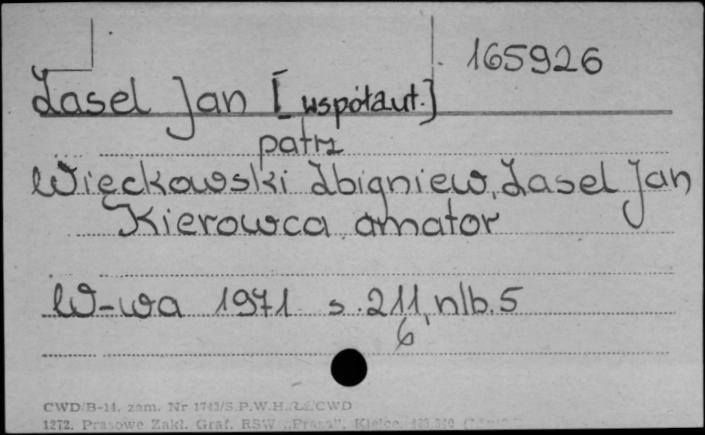 165926
Zasel Jan [współaut.]
patrz
Więckowski Zbigniew, Zasel Jan
Kierowca amator
W-wa 1971 s. 211, nlb. 5
6
CWD/B-14. zam. Nr 1743/S.P.W.H./ZZ/CWD
1272. Prasowe Zakł. Graf. RSW „Prasa”, Kielce